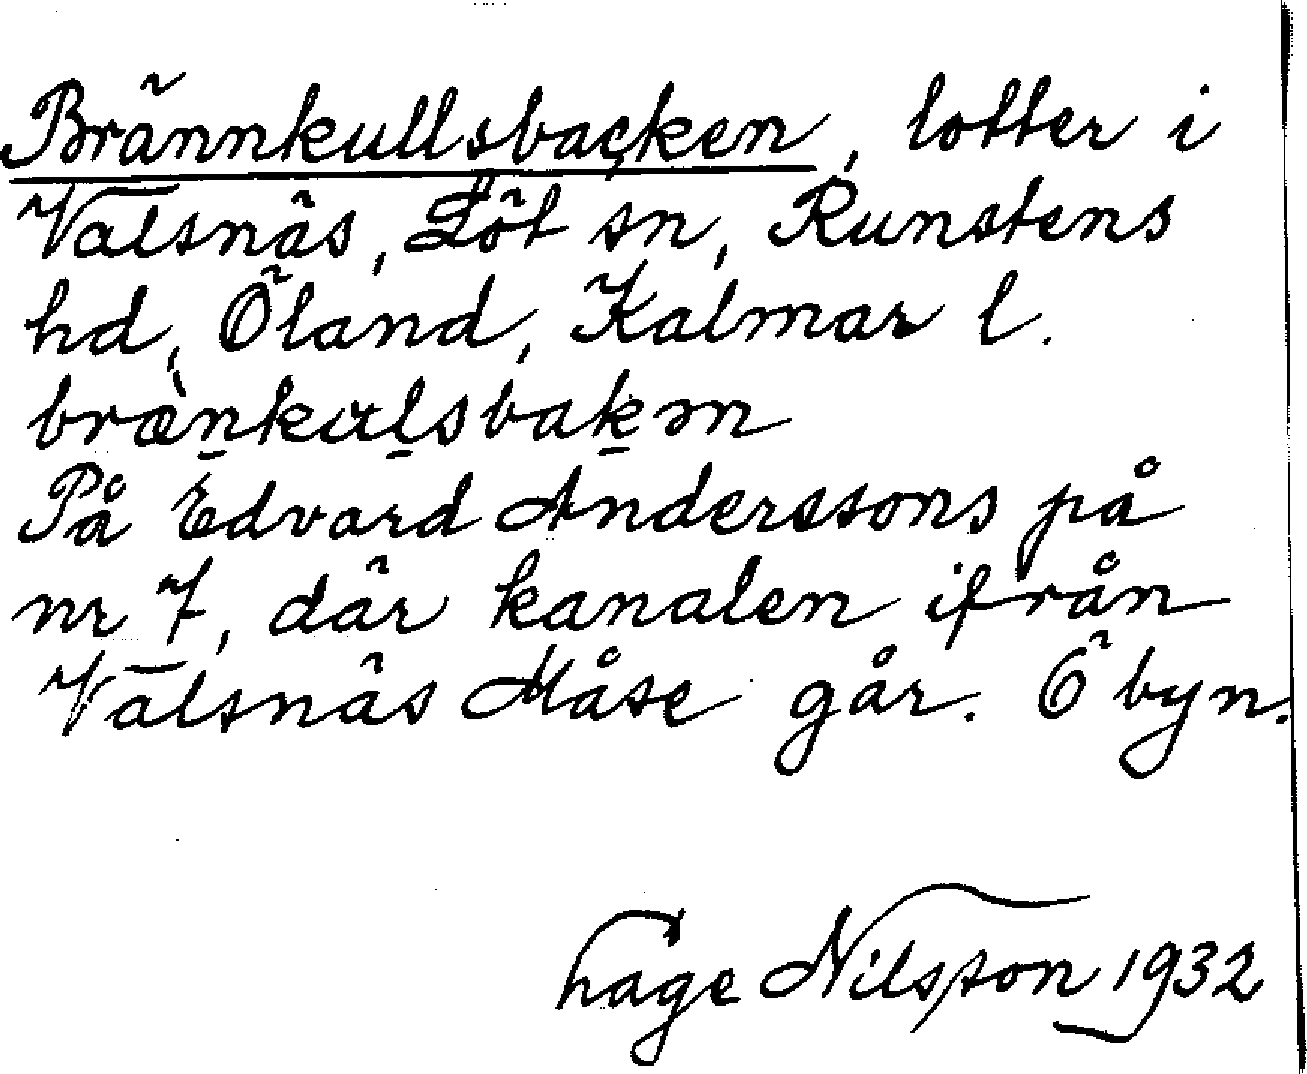 Brännkullsbacken, lotter i
Valsnäs, Löt sn, Runstens
hd, Öland, Kalmar l.
bræ̀n̠kul̠sbak̠ən
På Edvard Anderssons på
nr 7, där kanalen ifrån
Valsnäs Måse går. Ö byn.
Hage Nilsson 1932